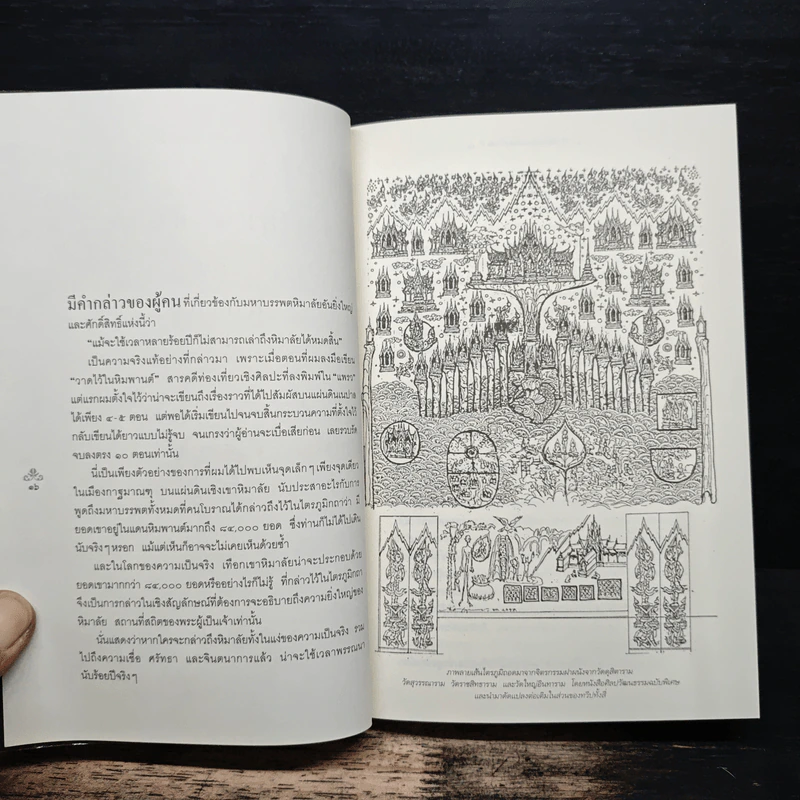 มีคำกล่าวของผู้คน ที่เกี่ยวข้องกับมหาบรรพตหิมาลัยอันยิ่งใหญ่
และศักดิ์สิทธิ์แห่งนี้ว่า
"แม้จะใช้เวลาหลายร้อยปีก็ไม่สามารถเล่าถึงหิมาลัยได้หมดสิ้น"
เป็นความจริงแท้อย่างที่กล่าวมา เพราะเมื่อตอนที่ผมลงมือเขียน
"วาดไว้ในหิมพานต์" สารคดีท่องเที่ยวเชิงศิลปะที่ลงพิมพ์ใน "แพรว"
แต่แรกผมตั้งใจไว้ว่าน่าจะเขียนถึงเรื่องราวที่ได้ไปสัมผัสบนแผ่นดินเนปาล
ได้เพียง ๔-๕ ตอน แต่พอได้เริ่มเขียนไปจนจบสิ้นกระบวนความที่ตั้งใจไว้
กลับเขียนได้ยาวแบบไม่รู้จบ จนเกรงว่าผู้อ่านจะเบื่อเสียก่อน เลยรวบรัด
จบลงตรง ๑๐ ตอนเท่านั้น
นี่เป็นเพียงตัวอย่างของการที่ผมได้ไปพบเห็นจุดเล็กๆ เพียงจุดเดียว
ในเมืองกาฐมาณฑุ บนแผ่นดินเชิงเขาหิมาลัย นับประสาอะไรกับการ
พูดถึงมหาบรรพตทั้งหมดที่คนโบราณได้กล่าวถึงไว้ในไตรภูมิกถาว่า มี
ยอดเขาอยู่ในแดนหิมพานต์มากถึง ๘๔,๐๐๐ ยอด ซึ่งท่านก็ไม่ได้ไปเดิน
นับจริงๆ หรอก แม้แต่เห็นก็อาจจะไม่เคยเห็นด้วยซ้ำ
และในโลกของความเป็นจริง เทือกเขาหิมาลัยน่าจะประกอบด้วย
ยอดเขามากกว่า ๘๔,๐๐๐ ยอดหรืออย่างไรก็ไม่รู้ ที่กล่าวไว้ในไตรภูมิกถา
จึงเป็นการกล่าวในเชิงสัญลักษณ์ที่ต้องการจะอธิบายถึงความยิ่งใหญ่ของ
หิมาลัย สถานที่สถิตของพระผู้เป็นเจ้าเท่านั้น
นั่นแสดงว่าหากใครจะกล่าวถึงหิมาลัยทั้งในแง่ของความเป็นจริง รวม
ไปถึงความเชื่อ ศรัทธา และจินตนาการแล้ว น่าจะใช้เวลาพรรณนา
นับร้อยปีจริงๆ
๑๖
ภาพลายเส้นไตรภูมิถอดมาจากจิตรกรรมฝาผนังจากวัดดุสิตาราม
วัดสุวรรณาราม วัดราชสิทธาราม และวัดใหญ่อินทาราม โดยหนังสือศิลปวัฒนธรรมฉบับพิเศษ
และนำมาดัดแปลงต่อเติมในส่วนของทวีปทั้งสี่